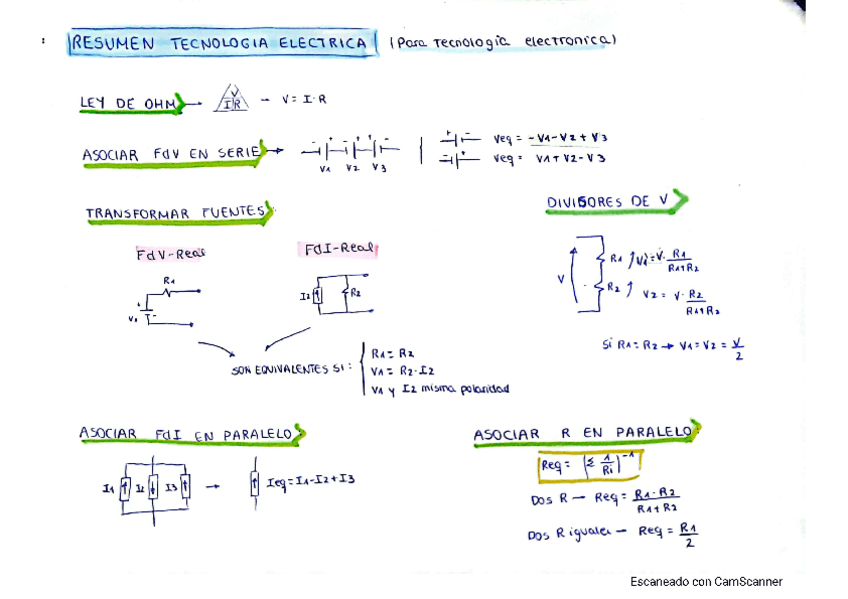 RESUMEN TECNOLOGIA ELECTRICA (Para Tecnologia electronica)
LEY DE OHM → V I R - V = I · R
ASOCIAR FdV EN SERIE → V1 V2 V3
Veq = -V1-V2+V3
Veq = V1+V2-V3
TRANSFORMAR FUENTES
FdV-Real
R1
V1
FdI-Real
I2 R2
SON EQUIVALENTES SI:
R1 = R2
V1 = R2 · I2
V1 y I2 misma polaridad
DIVISORES DE V
V
R1 V1 = V · R1 / R1+R2
R2 V2 = V · R2 / R1+R2
Si R1 = R2 → V1 = V2 = V / 2
ASOCIAR FdI EN PARALELO
I1 I2 I3 → Ieq = I1-I2+I3
ASOCIAR R EN PARALELO
Req = (Σ 1 / Ri)^-1
DOS R - Req = R1 · R2 / R1+R2
DOS R iguales - Req = R1 / 2
Escaneado con CamScanner